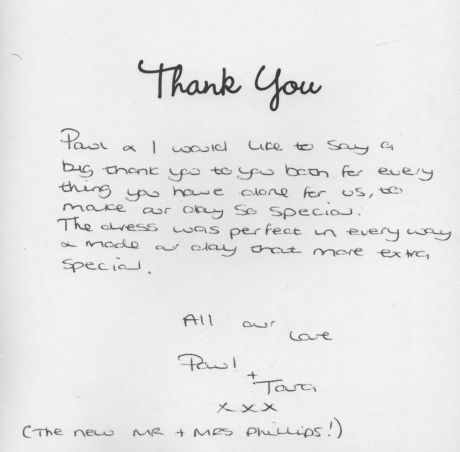 Thank You
Paul & I would like to say a
big thank you to you both for every
thing you have done for us, to
make our day so special.
The dress was perfect in every way
& made our day that more extra
special.
All our
Love
Paul
+
Tara
x x x
(The new MR + MRS Phillips!)